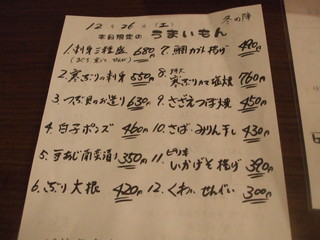 冬の陣
12月26日(土)
本日限定の うまいもん
1.刺身三種盛 680円
2.寒ぶりの刺身 550円
3.つぶ貝のお造り 630円
4.白子ポンズ 460円
5.豆あじ南蛮漬け 350円
6.ぶり大根 420円
7.鯛カブト揚げ 490円
8.特大 寒ぶりカマ塩焼 760円
9.さざえつぼ焼 450円
10.さば・みりん干し 430円
11.ピリ辛 いかげそ揚げ 390円
12.くわいせんべい 300円